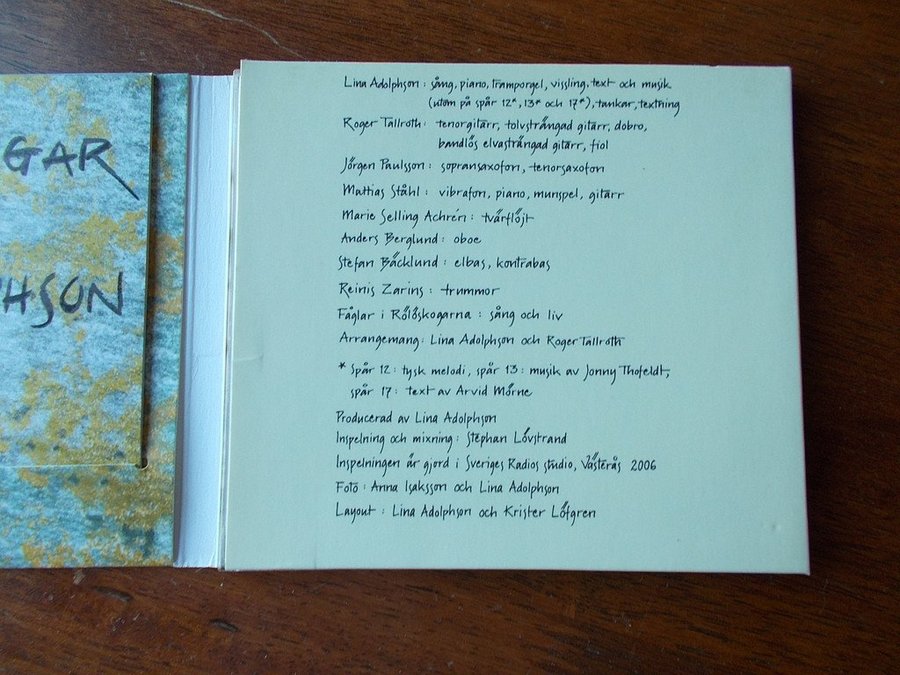 GAR
HSON
Lina Adolphson : sång, piano, tramporgel, vissling, text och musik
(utom på spår 12*, 13* och 17*), tankar, textning
Roger Tallroth : tenorgitarr, tolvsträngad gitarr, dobro,
bandlös elvasträngad gitarr, fiol
Jörgen Paulsson : sopransaxofon, tenorsaxofon
Mattias Ståhl : vibrafon, piano, munspel, gitarr
Marie Selling Achrén : tvärflöjt
Anders Berglund : oboe
Stefan Bäcklund : elbas, kontrabas
Reinis Zarins : trummor
Fåglar i Rölöskogarna : sång och liv
Arrangemang : Lina Adolphson och Roger Tallroth
* Spår 12 : tysk melodi, spår 13 : musik av Jonny Thofeldt,
spår 17 : text av Arvid Mörne
Producerad av Lina Adolphson
Inspelning och mixning : Stephan Lövstrand
Inspelningen är gjord i Sveriges Radios studio, Västerås 2006
Foto : Anna Isaksson och Lina Adolphson
Layout : Lina Adolphson och Krister Löfgren